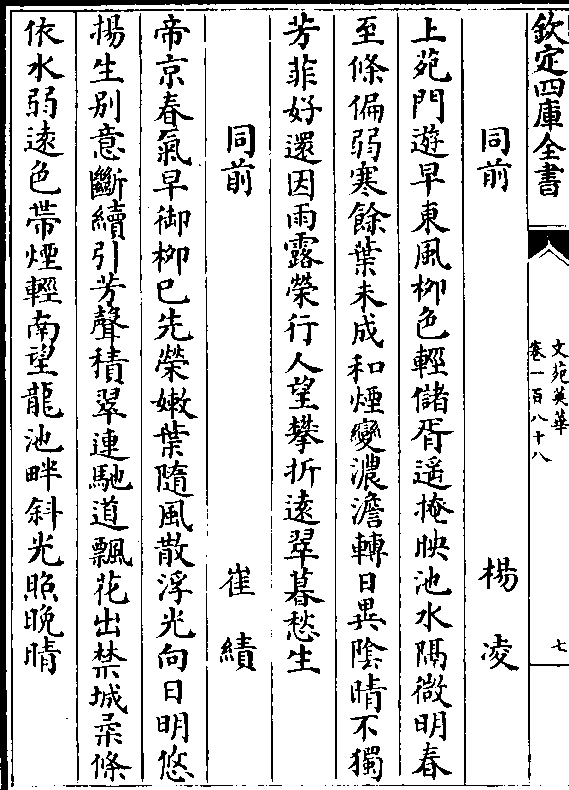 欽定四庫全書
文苑英華
卷一百八十八
七
同前 楊凌
上苑門遊早東風栁色輕儲胥遥掩映池水隔微明春
至條偏弱寒餘葉未成和煙變濃澹轉日異陰晴不獨
芳菲好還因雨露榮行人望攀折逺翠暮愁生
同前 崔績
帝京春氣早御栁已先榮嫩葉隨風散浮光向日明悠
揚生别意斷續引芳聲積翠連馳道飄花出禁城柔條
依水弱逺色帶煙輕南望龍池畔斜光照晩晴